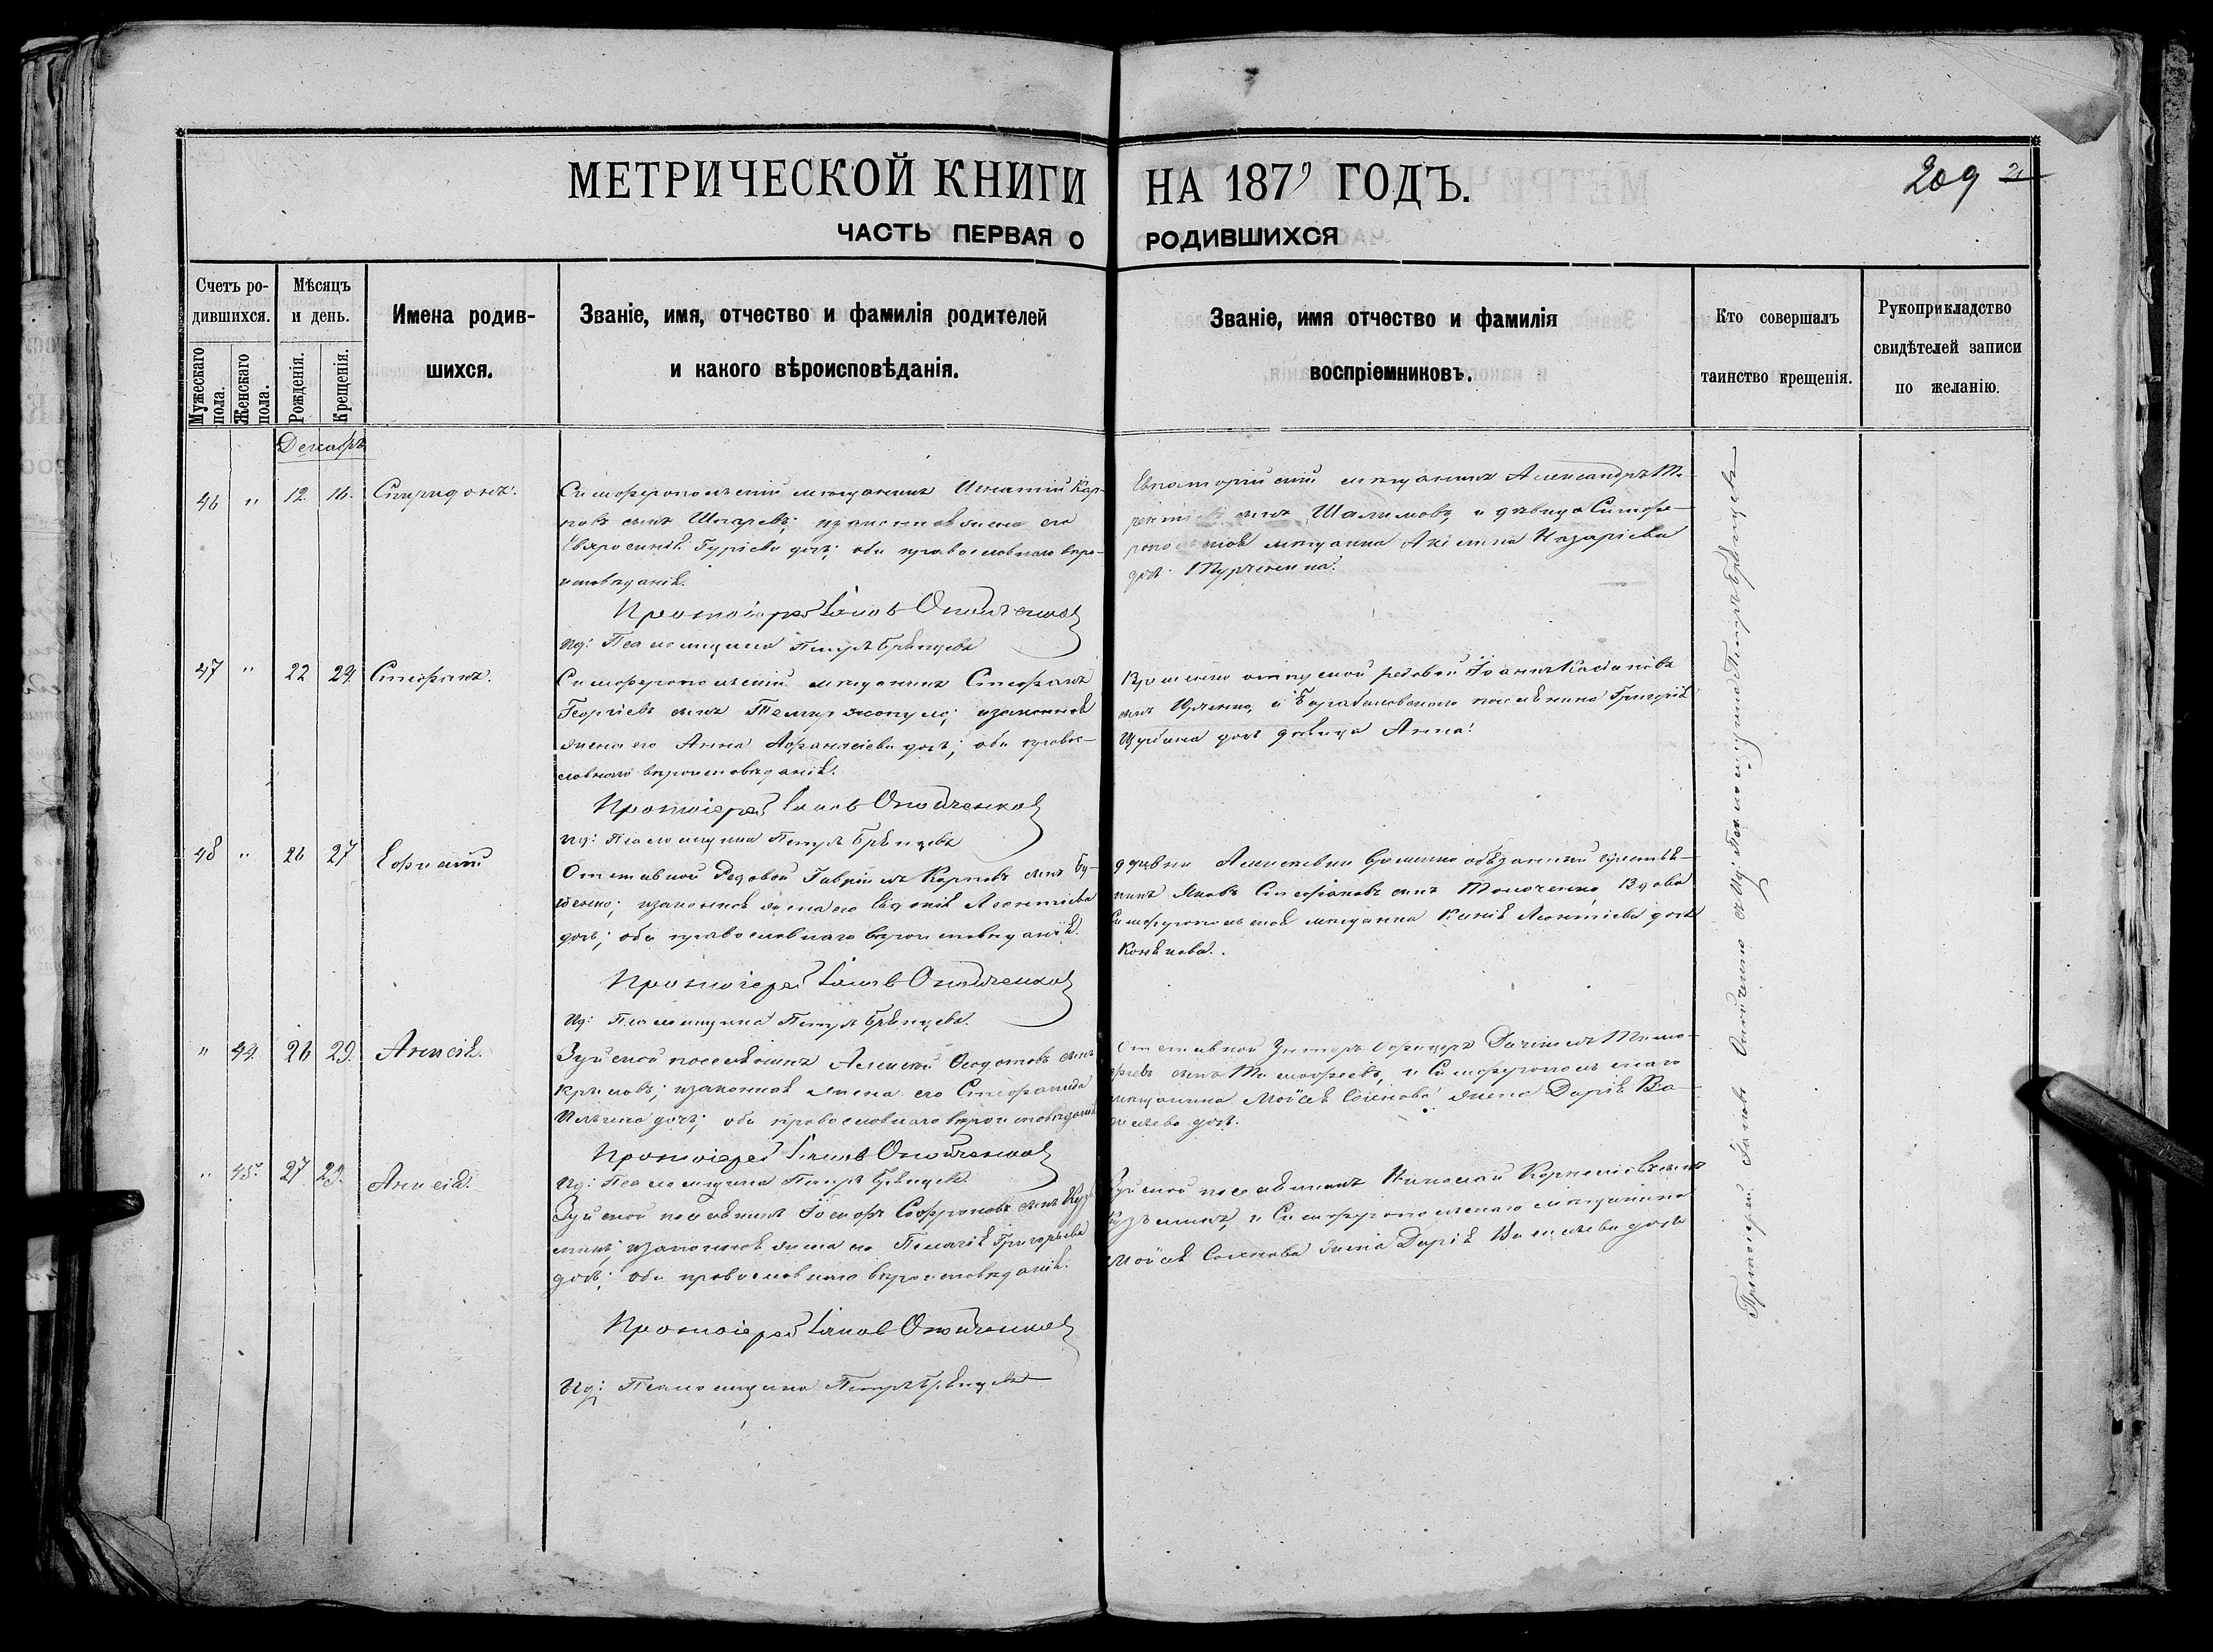 МЕТРИЧЕСКОЙ КНИГИ НА 1879 ГОДЪ.
209
ЧАСТЬ ПЕРВАЯ О РОДИВШИХСЯ
Счетъ ро-
дившихся.
Мужескаго пола.
Женскаго пола.
Мѣсяцъ
и день.
Рожденія.
Крещенія.
Имена родив-
шихся.
Званіе, имя, отчество и фамилія родителей
и какого вѣроисповѣданія.
Званіе, имя отчество и фамилія
воспріемниковъ.
Кто совершалъ
таинство крещенія.
Рукоприкладство
свидѣтелей записи
по желанію.
Декабрь
46 " 12. 16. Спиридонъ.
Симферопольскій мѣщанинъ Игнатій Кар-
повъ сынъ; законная жена его
Евфросинія Гуріева дочь; оба православнаго вѣро-
исповѣданія.
Протоіерей Іаковъ Онойченко
Ид: Псаломщика Петръ Брѣнцевъ
Евпаторійскій мѣщанинъ Александръ
сынъ Шалимовъ, и дѣвица Симфе-
ропольская мѣщанка Акилина Назаріева
дочь
47 " 22 29. Стефанъ.
Симферопольскій мѣщанинъ Стефанъ
Георгіевъ сынъ; законная
жена его Анна Афанасіева дочь; оба право-
славнаго вѣроисповѣданія.
Протоіерей Іаковъ Онойченко
Ид: Псаломщика Петръ Брѣнцевъ
Временно отпускной рядовой Іоаннъ Касіановъ
сынъ и поселянина Григорія
дочь дѣвица Анна.
48 " 26 27 Ефимій
Отставной Рядовой Гавріилъ Карповъ сынъ Бу-
; законная жена его Евдокія Леонтіева
дочь; оба православнаго вѣроисповѣданія.
Протоіерей Іаковъ Онойченко
Ид: Псаломщика Петръ Брѣнцевъ.
Деревни Алексѣевки временно обязанный крестья-
нинъ Яковъ Стефановъ сынъ, Вдова
Симферопольская мѣщанка Ксенія Леонтіева дочь
Конѣкова.
" 44. 26 29. Анисія.
Зуйской поселянинъ Алексѣй Ѳедотовъ сынъ
Крыловъ; законная жена его Стефанида
Ильина дочь; оба православнаго вѣроисповѣданія
Протоіерей Іаковъ Онойченко
Ид: Псаломщика Петръ Брѣнцевъ.
Отставной Унтеръ Офицеръ Даніилъ Тимо-
фѣевъ сынъ Тимофѣевъ, и Симферопольскаго
мѣщанина Мойсѣя жена Дарія Ва-
сильева дочь.
" 45. 27 29. Анисія.
Зуйской поселянинъ Іосифъ Софроновъ сынъ Кузь-
минъ; законная жена его Пелагія Григорьева
дочь; оба православнаго вѣроисповѣданія.
Протоіерей Іаковъ Онойченко
Ид: Псаломщика Петръ Брѣнцевъ
Зуйской поселянинъ Николай Корниліевъ сынъ
Кузьминъ, и Симферопольскаго мѣщанина
Мойсѣя жена Дарія Васильева дочь
Протоіерей Іаковъ Онойченко съ Ид: Псаломщика Петръ Брѣнцевъ